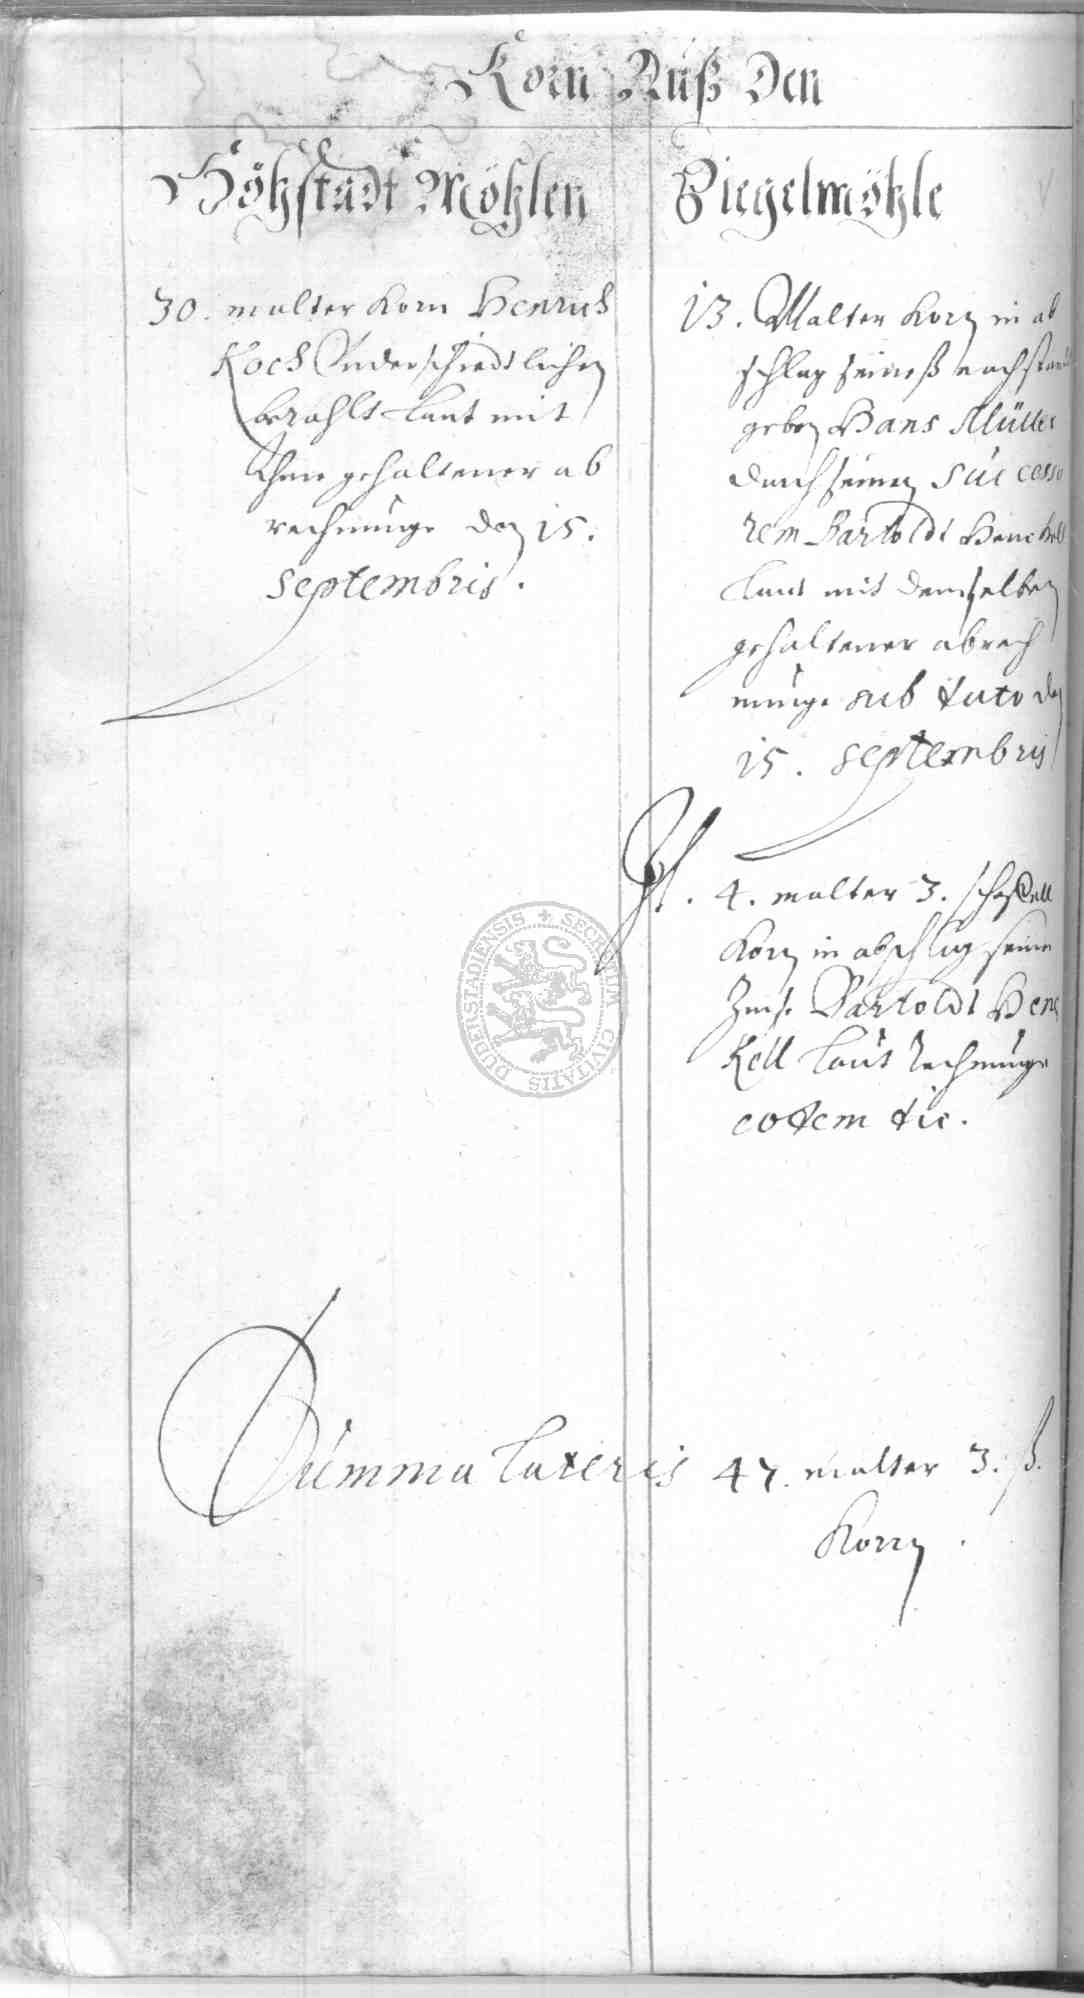 Korn Auß Den
Höhstadt Möhlen
30. malter Korn Henrich
Koch Underschiedtlichen
bezahlt laut mit
Ihme gehaltener ab
rechnunge den 15.
Septembris.
Ziegelmöhle
13. Malter Korn in ab
schlag seineß nachstand
geben Hans Müller
durch seinen Successo
rem Bartoldt Henckell
laut mit demselben
gehaltener abrech
nunge sub dato den
15. Septembris
It. 4. malter 3. scheffell
Korn in abschlag seiner
Zinse Bartoldt Henc
kell laut rechnunge
eodem die.
Summa Lateris 47. malter 3. ß.
Korn.
SECRETUM CIVITATIS DUDERSTADIENSIS